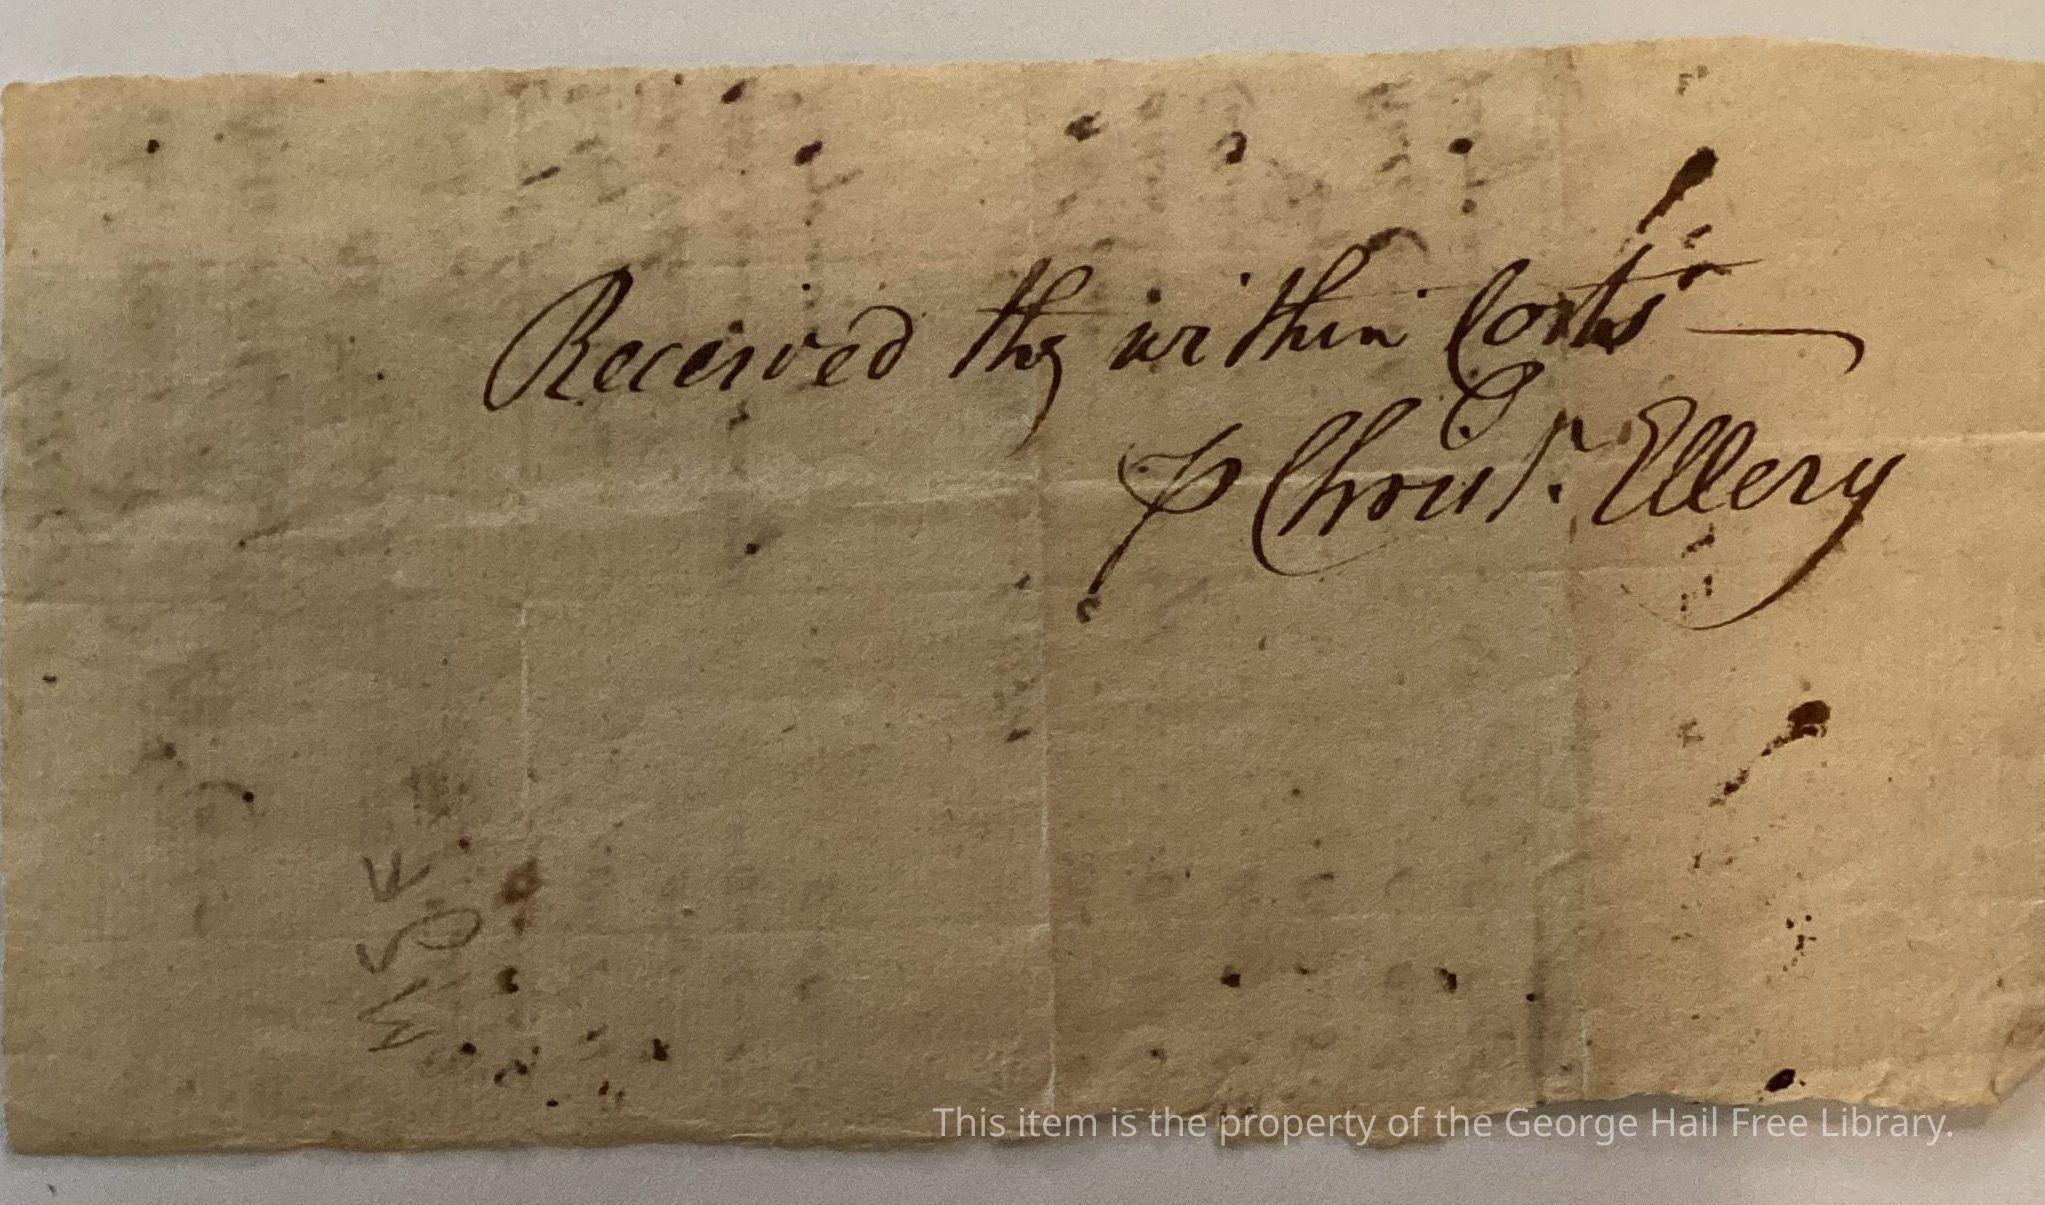 Received the within Costs
₱ Chrisr. Ellery
This item is the property of the George Hail Free Library.